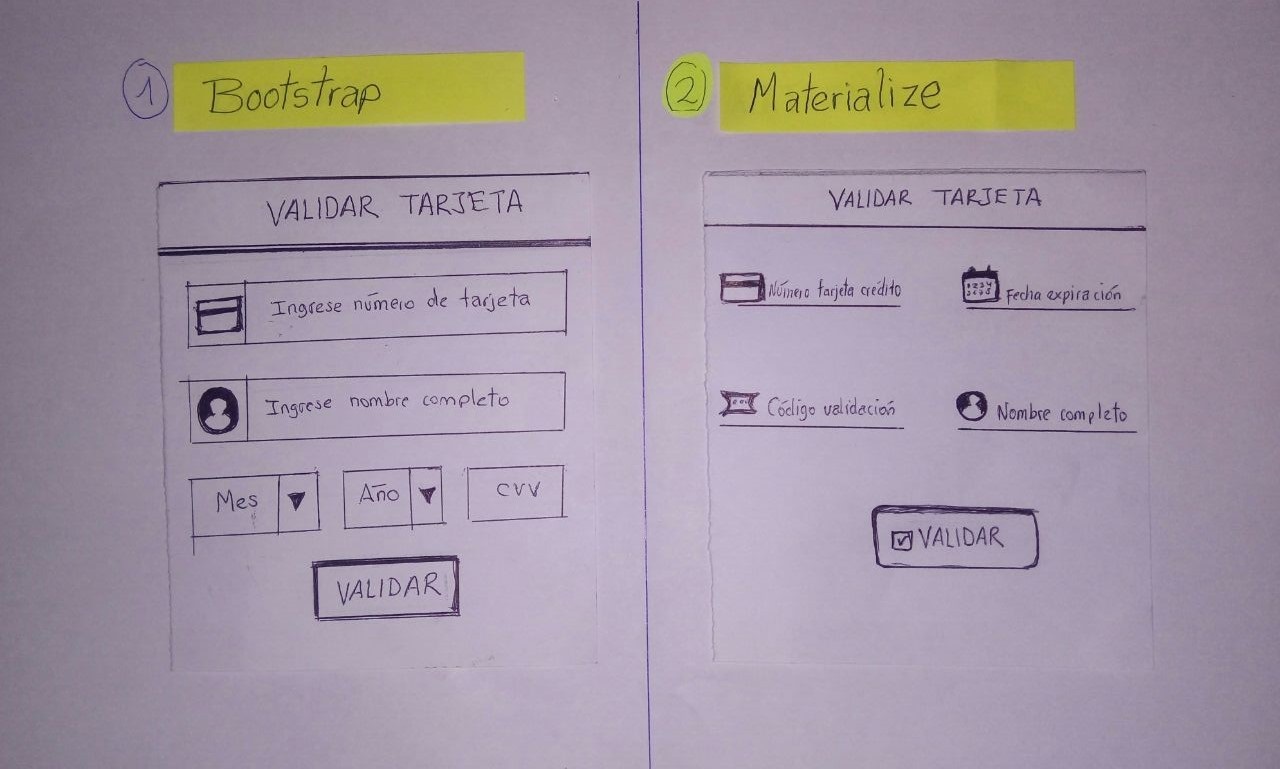 1 Bootstrap
VALIDAR TARJETA
Ingrese número de tarjeta
Ingrese nombre completo
Mes Año CVV
VALIDAR
2 Materialize
VALIDAR TARJETA
Número tarjeta crédito Fecha expiración
Código validación Nombre completo
VALIDAR